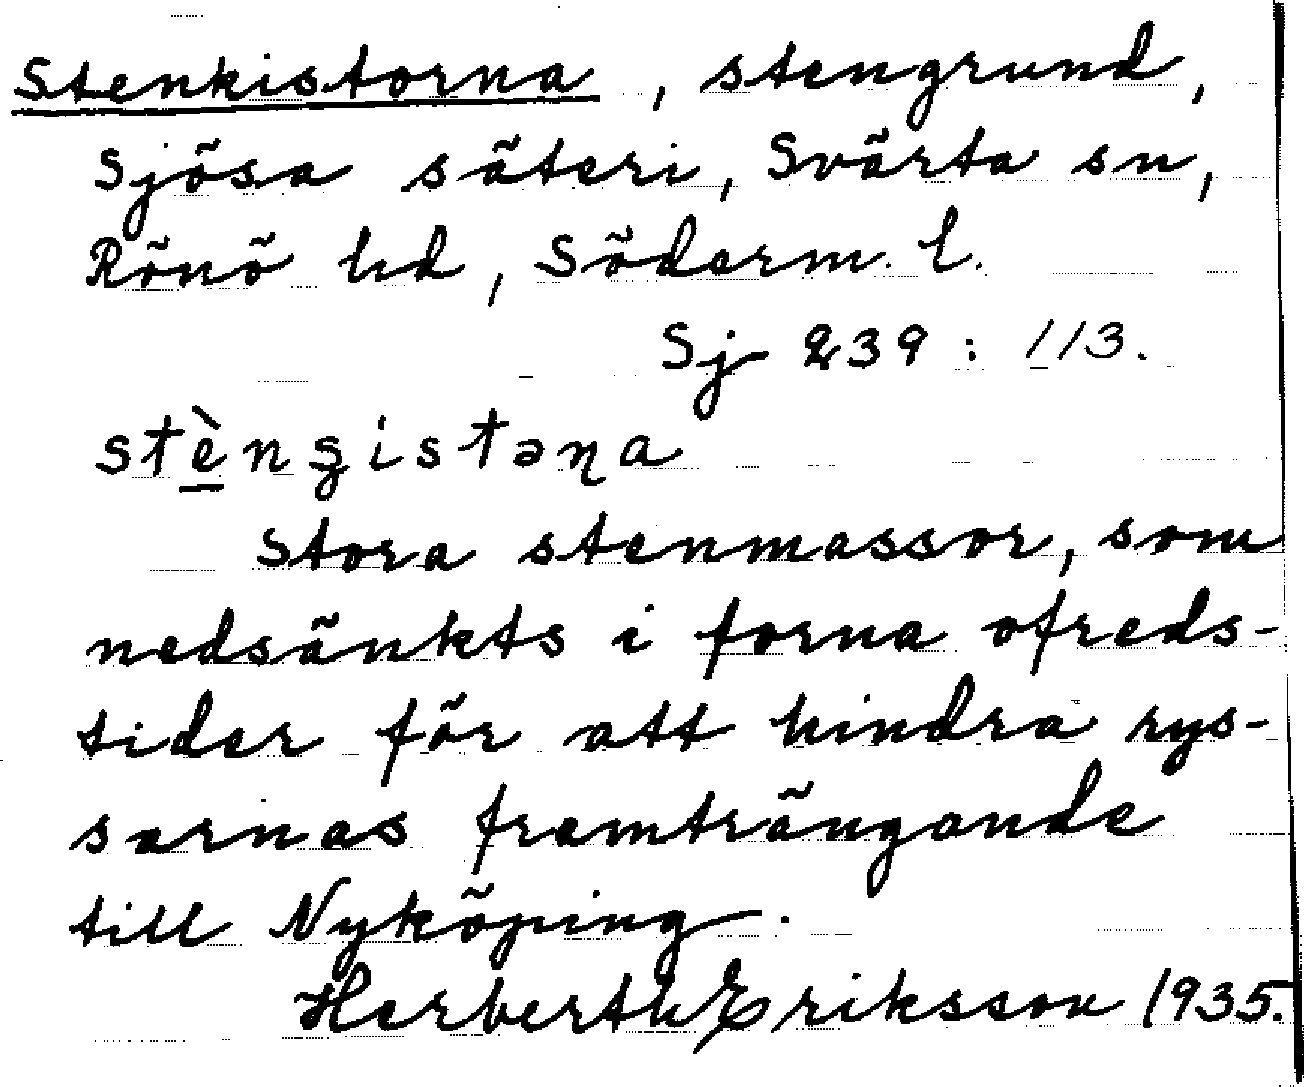 Stenkistorna, stengrund,
Sjösa säteri, Svärta sn,
Rönö hd, Söderm. l.
Sj 239 : 113.
stèngistəɳa
Stora stenmassor, som
nedsänkts i forna ofreds-
tider för att hindra rys-
sarnas framträngande
till Nyköping.
Herberth Eriksson 1935.